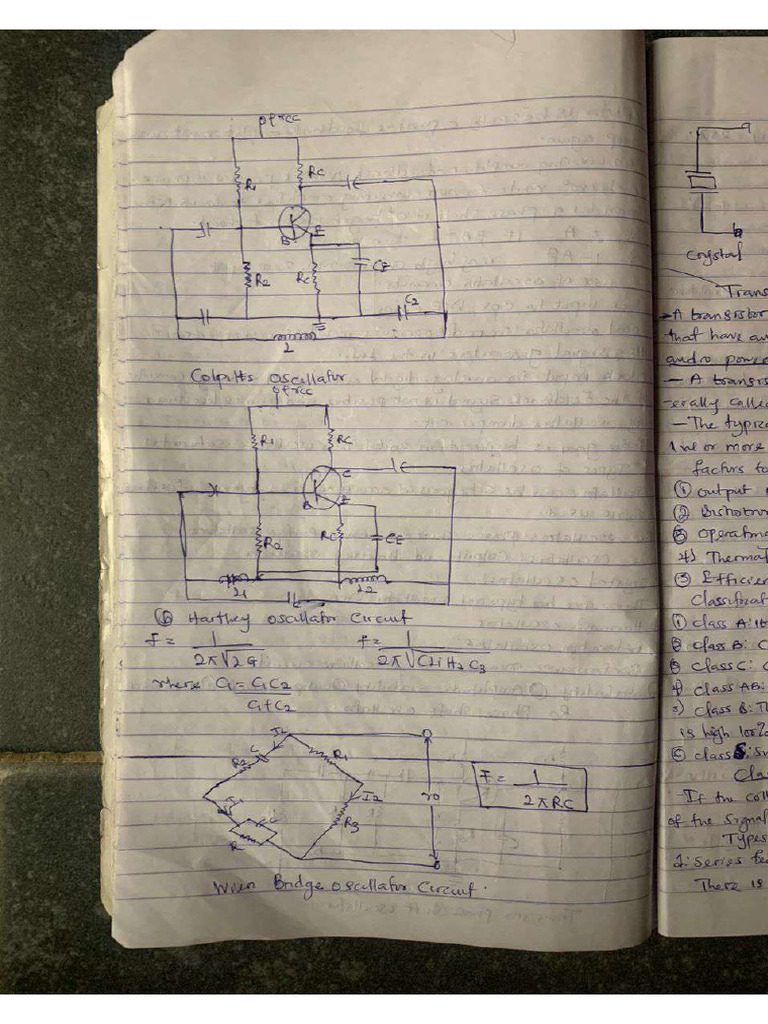 R1
RC
B
E
R2
RC
CE
C2
2
Colpitts oscillator
R1
RC
C
B
E
R2
RC
CE
21
22
Hartley oscillator Circuit
F = 1
2π√2G
f = 1
2π√(L1+L2 C3
where G = C1C2
C1+C2
I2
C
R2
R1
I2
R3
R
vo
F = 1
2πRC
Wien Bridge oscillator Circuit.
a
b
crystal
Trans
→ A transistor
that have au
audio power
- A transis
-erally called
- The typica
line or more
factors to
① output
② Distortion
③ Operating
4) Thermal
③ Efficien
Classificat
① class A: 1t
② class B: C
③ class C: C
4) class AB:
5) class B: Th
is high 100%
⑥ class S: Sw
Cla
- If the coll
of the signal
Types
1: series fe
There is